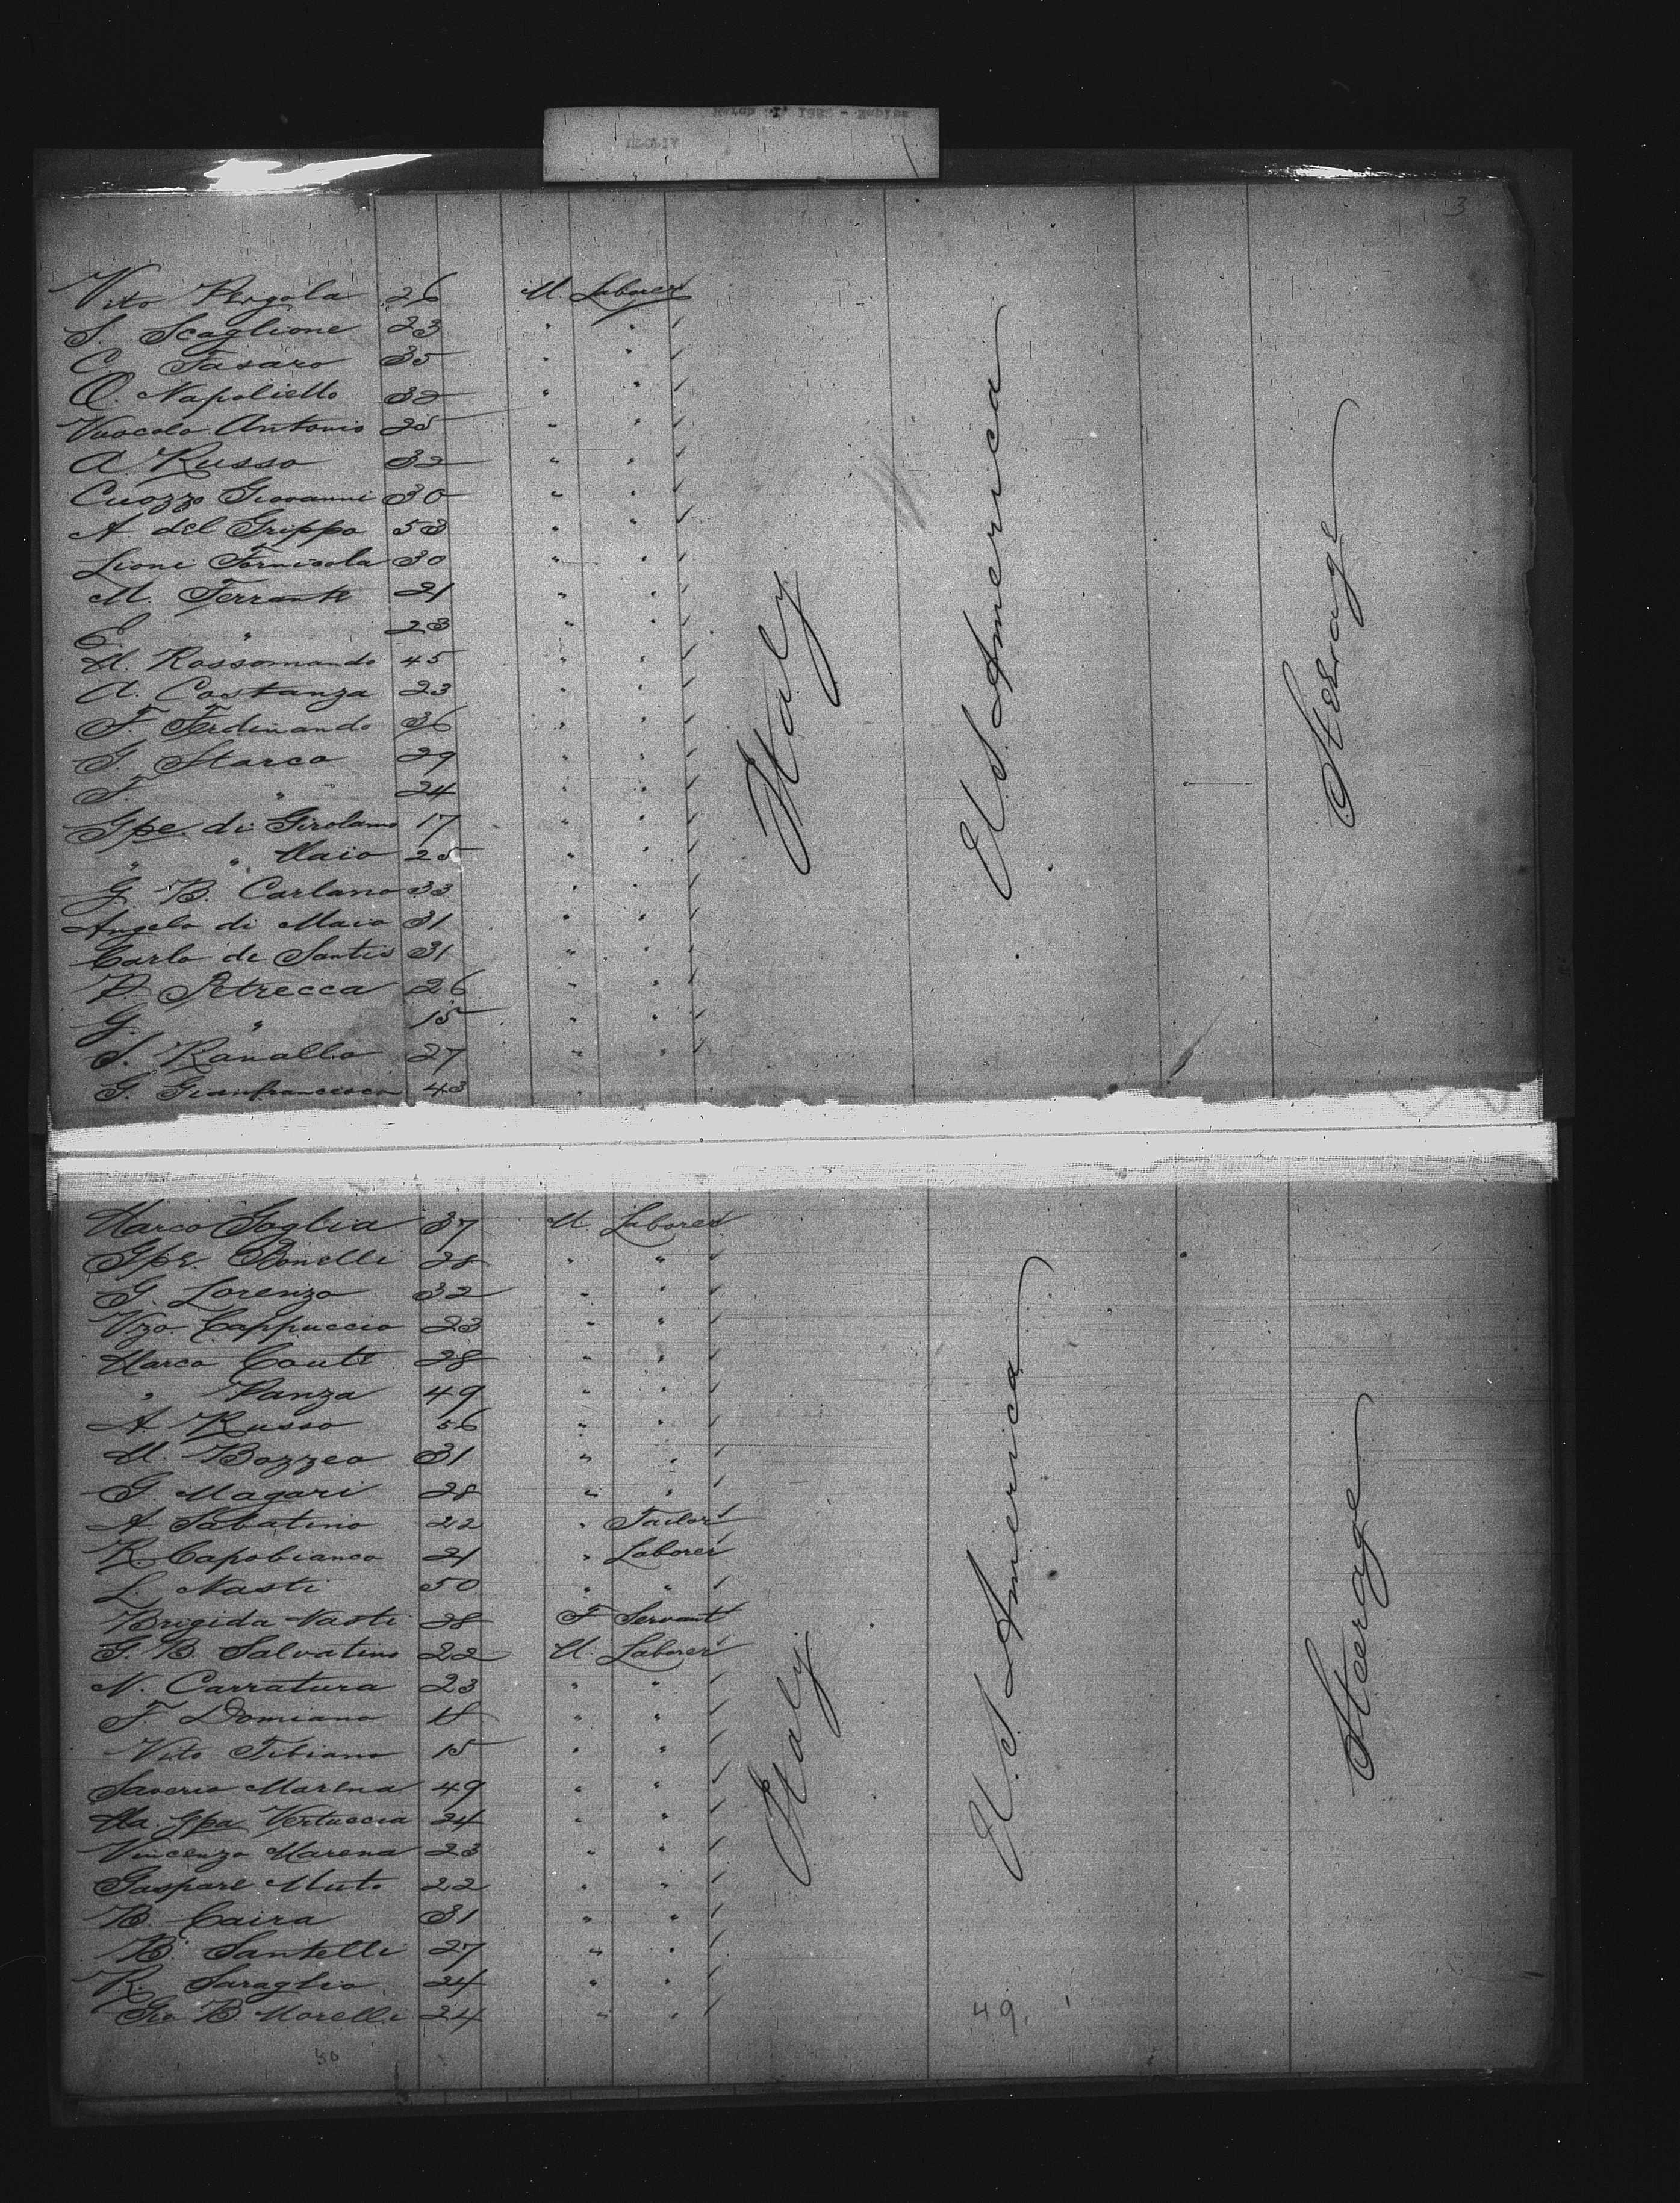 3
Vito Pergola 26 M. Laborer
S. Scaglione 23 " "
C. Fasaro 35 " "
Q. Napoliello 32 " "
Vuocolo Antonio 25 " "
A Russo 32 " "
Cuozzo Giovanni 30 " "
A del Grippo 53 " "
Lioni Fornicola 30 " "
M. Ferrante 21 " "
E. " 23 " "
M. Rossomando 45 " "
A. Costanza 23 " "
F. Ferdinando 36 " "
G. Starco 29 " "
F. " 24 " "
Gpe. di Girolamo 17 " "
" " Maio 25 " "
G. B. Carlano 33 " "
Angelo di Maio 31 " "
Carlo de Santis 31 " "
P. Petrecca 26 " "
G. " 15 " "
S. Ranallo 27 " "
G. Gianfrancesco 43 " "
Italy
U. S. America
Steerage
Marco Goglia 37 M. Laborer
Gpe. Bonelli 28 " "
G. Lorenzo 32 " "
Vzo. Cappuccio 23 " "
Marco Conte 28 " "
" Panza 49 " "
A Russo 56 " "
M. Bozzeo 31 " "
G. Magari 28 " "
A. Sabatino 22 " Tailor
R. Capobianco 21 " Laborer
L. Nasti 50 " "
Brigida Nasti 28 F Servant
G. B. Salvatino 22 M. Laborer
N. Carratura 23 " "
F. Domiano 18 " "
Vito Tibiano 15 " "
Saverio Marena 49 " "
Ma. Gpa Vertuccia 24 " "
Vincenzo Marena 23 " "
Gaspare Muto 22 " "
B. Caira 31 " "
B. Santelli 27 " "
R. Saraglio 24 " "
Gio B Morelli 24 " "
Italy
U. S. America
Steerage
49.
50